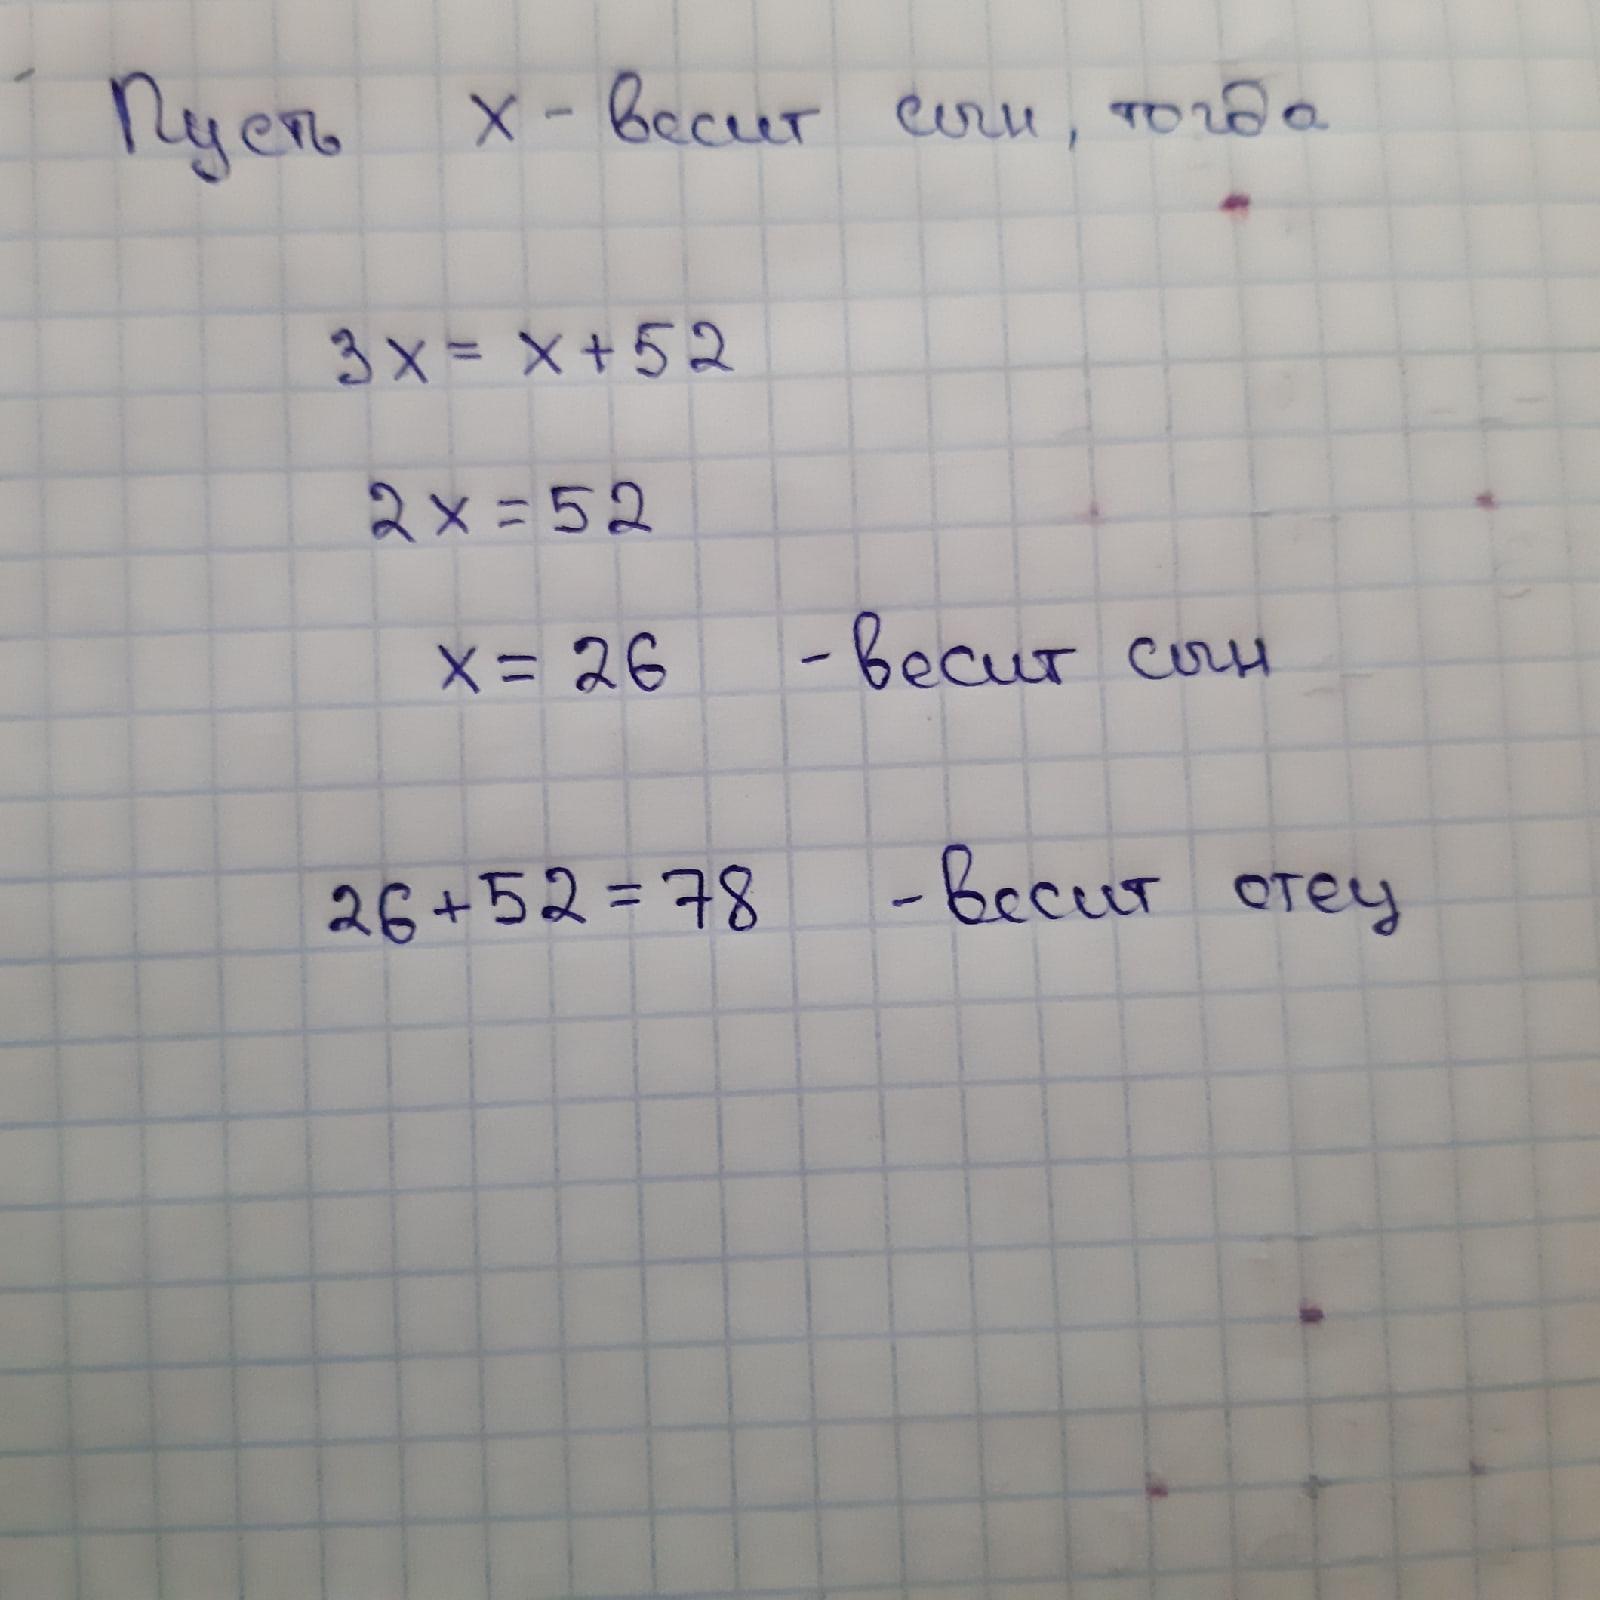 Пусть x - весит сын, тогда
3x = x + 52
2x = 52
x = 26 - весит сын
26 + 52 = 78 - весит отец